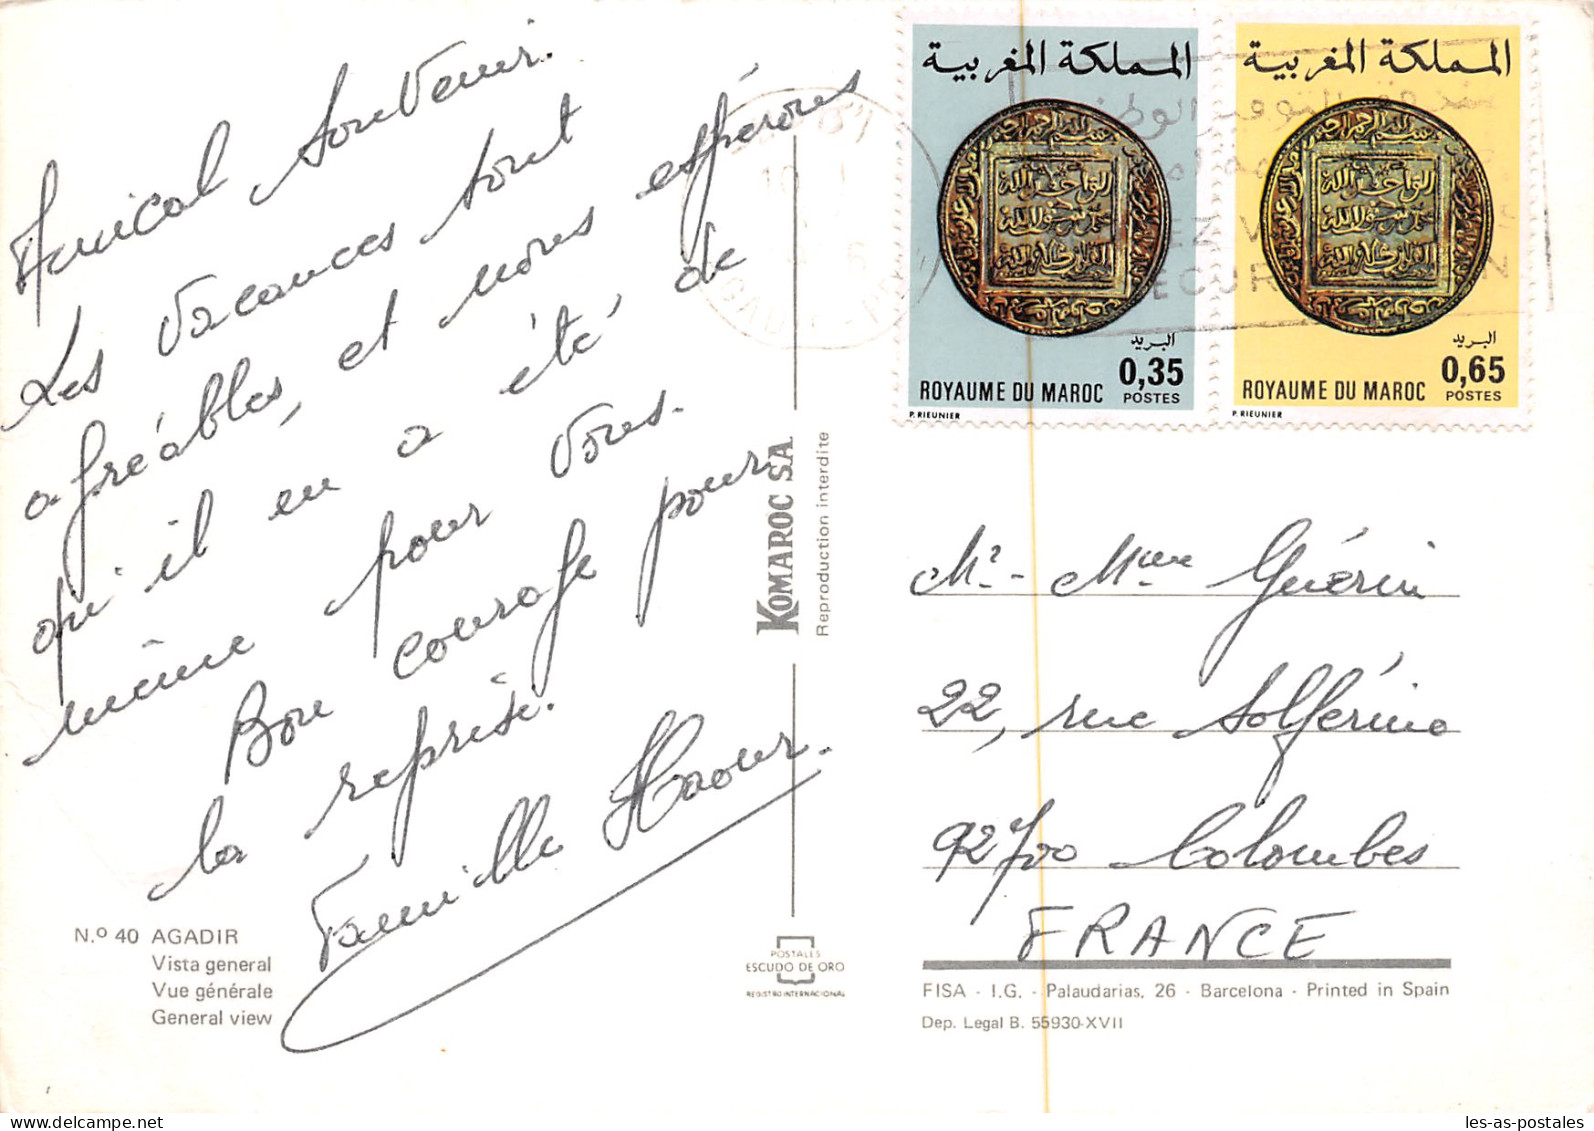 Amical Souvenir.
Les vacances sont
agréables, et nous espérons
qu'il en a été de
même pour vous.
Bon courage pour
la reprise.
Famille Haour.
N.º 40 AGADIR
Vista general
Vue générale
General view
KOMAROC S.A
Reproduction interdite
POSTALES
ESCUDO DE ORO
REGISTRO INTERNACIONAL
المملكة المغربية
البريد
0,35
ROYAUME DU MAROC
POSTES
P. RIEUNIER
المملكة المغربية
البريد
0,65
ROYAUME DU MAROC
POSTES
P. RIEUNIER
Mr. - Mme Guérin
22, rue Solférino
92700 Colombes
FRANCE
FISA - I.G. - Palaudarias, 26 - Barcelona - Printed in Spain
Dep. Legal B. 55930-XVII
les-as-postales.com